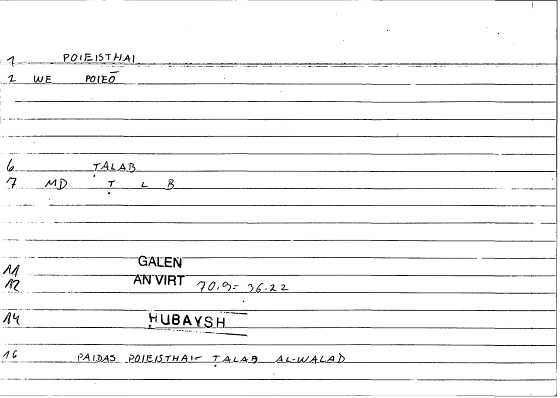 1 POIEISTHAI
2 WE POIEŌ
6 ṬALAB
7 MD Ṭ L B
11 GALEN
12 AN VIRT 70.9= 36.22
14 ḤUBAYSH
16 PAIDAS POIEISTHAI- ṬALAB AL-WALAD